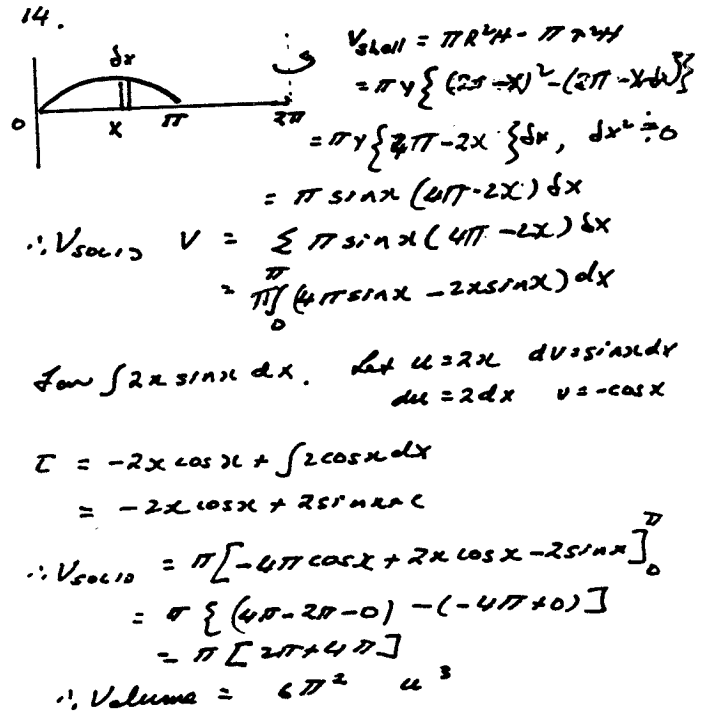 14.
V_shell = πR²H - πr²H
δx
= πy{(2π-x)² - (2π-x-δx)²}
0 x π 2π
= πy{4π-2x}δx, δx² ≑ 0
= π sinx (4π-2x) δx
∴ V_SOLID V = Σ π sinx (4π-2x) δx
= π∫₀^π (4π sinx - 2x sinx) dx
For ∫2x sinx dx. Let u = 2x dv = sinx dx
du = 2dx v = -cosx
I = -2x cosx + ∫2cosx dx
= -2x cosx + 2sinx + c
∴ V_SOLID = π[-4π cosx + 2x cosx - 2sinx]₀^π
= π{(4π-2π-0) - (-4π+0)]
= π[2π+4π]
∴ Volume = 6π² u³